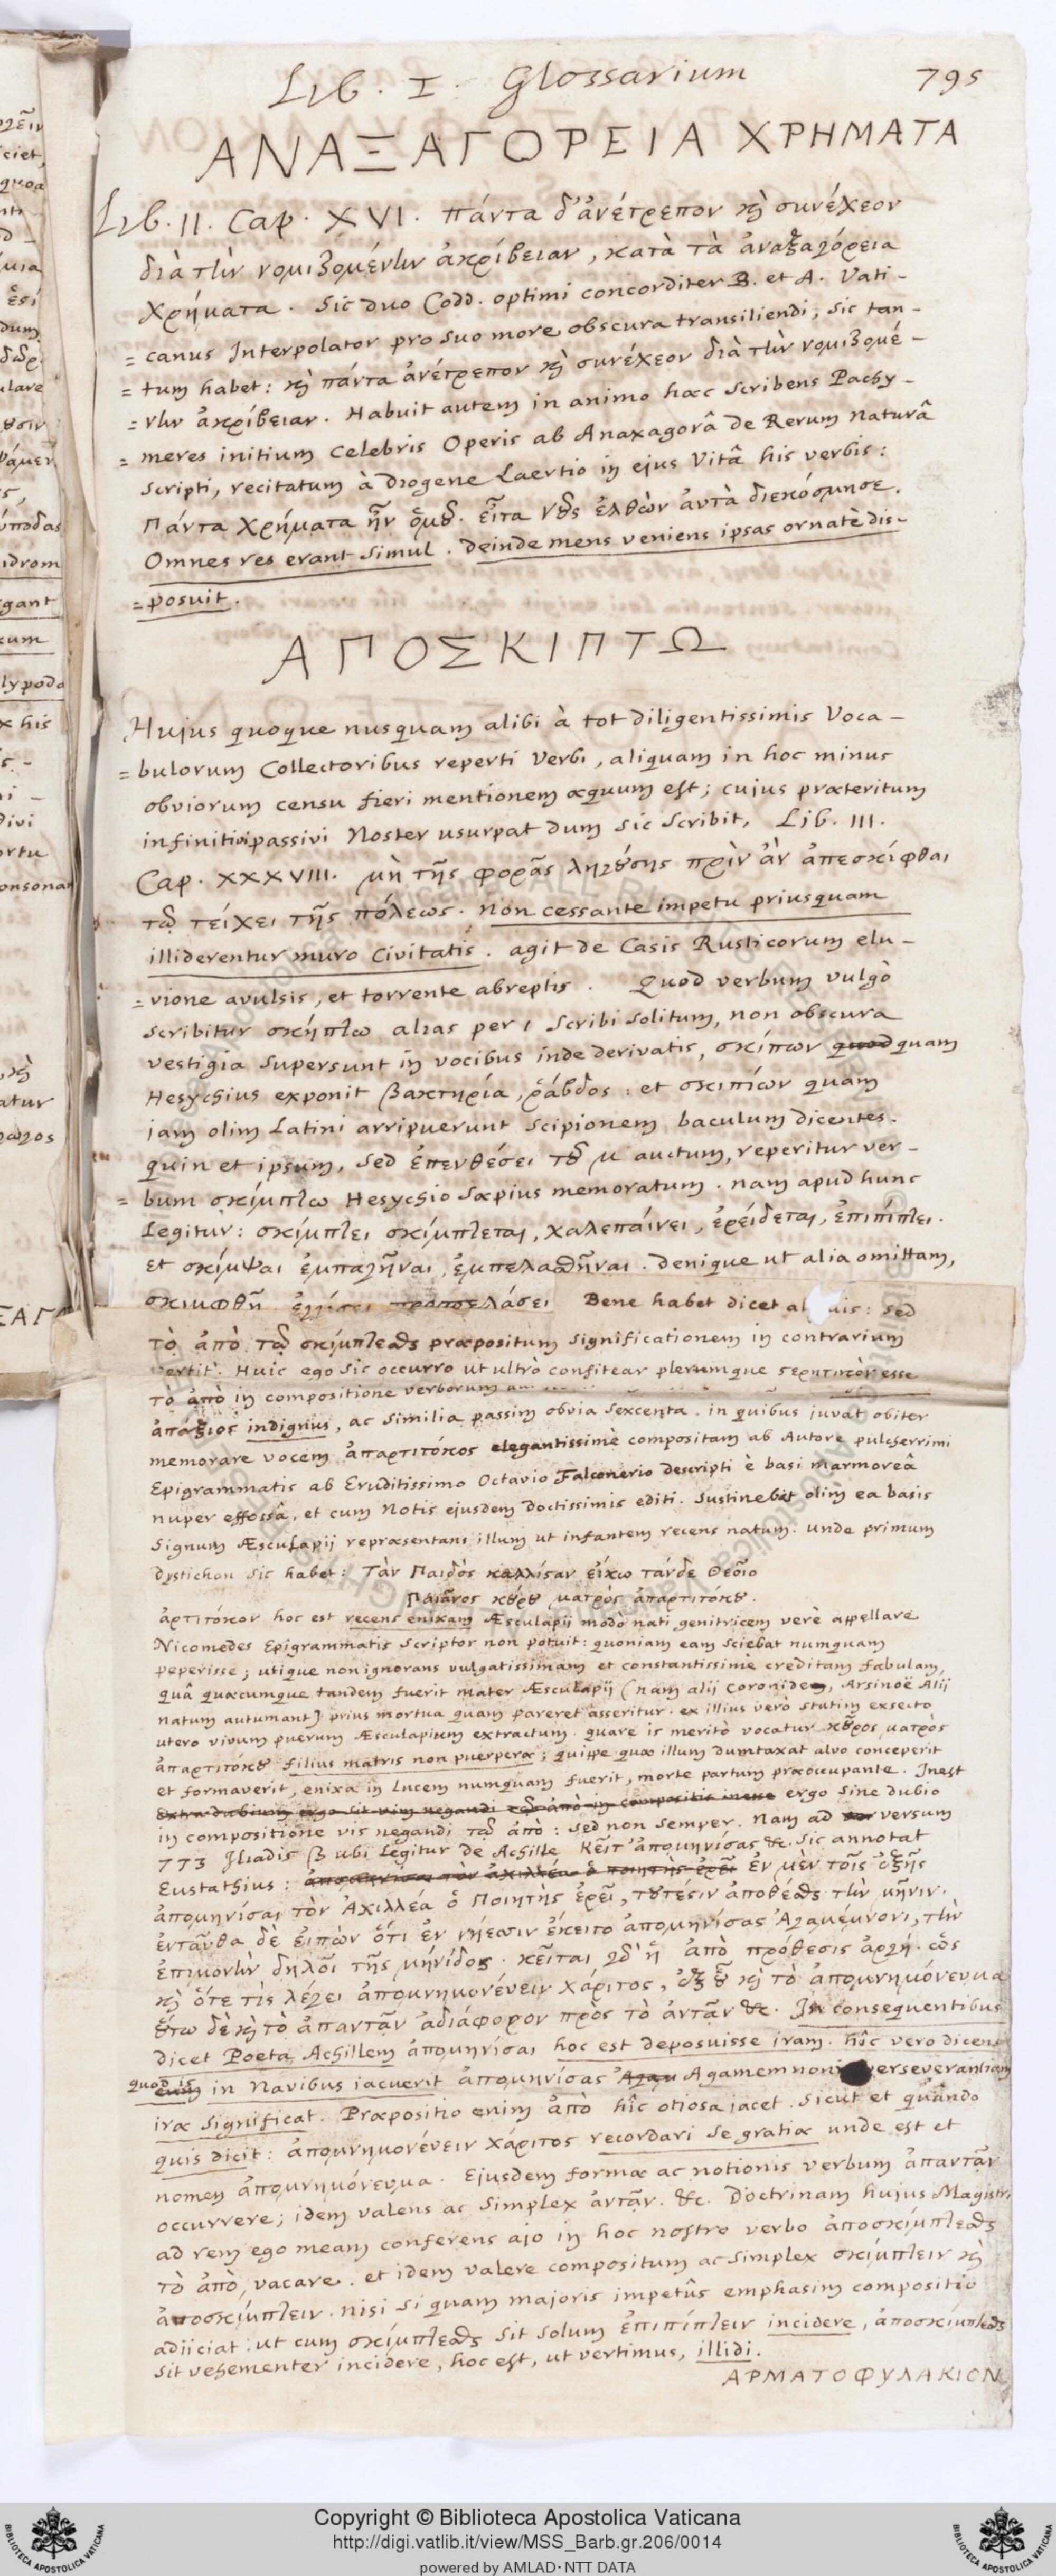 Lib. I. Glossarium 795
ΑΝΑΞΑΓΟΡΕΙΑ ΧΡΗΜΑΤΑ
Lib. II. Cap. XVI. πάντα δ' ἀνέτρεπον κὴ συνέχεον
διὰ τὴν νομιζομένην ἀκρίβειαν, κατὰ τὰ ἀναξαγόρεια
χρήματα. Sic duo Codd. optimi concorditer B. et A. Vati-
= canus Interpolator pro suo more obscura transiliendi, sic tan-
= tum habet: κὴ πάντα ἀνέτρεπον κὴ συνέχεον διὰ τὴν νομιζομέ-
= νην ἀκρίβειαν. Habuit autem in animo haec scribens Pachy-
= meres initium celebris Operis ab Anaxagorâ de Rerum naturâ
scripti, recitatum à Diogene Laertio in ejus Vitâ his verbis:
Πάντα χρήματα ἦν ὁμȣ. εἶτα νȣς ἐλθὼν αὐτὰ διεκόσμησε.
Omnes res erant simul. deinde mens veniens ipsas ornatè dis-
= posuit.
ΑΠΟΣΚΙΠΤΩ
Hujus quoque nusquam alibi à tot diligentissimis Voca-
= bulorum Collectoribus reperti Verbi, aliquam in hoc minus
obviorum censu fieri mentionem æquum est; cujus præteritum
infinitivi passivi Noster usurpat dum sic scribit, Lib. III.
Cap. XXXVIII. μὴ τῆς φορᾶς ληγȣσης πρὶν ἀν ἀπεσκίφθαι
τῶ τείχει τῆς πόλεως. Non cessante impetu priusquam
illiderentur muro Civitatis. agit de Casis Rusticorum elu-
= vione avulsis, et torrente abreptis. Quod verbum vulgò
scribitur σκήπτω alias per ι scribi solitum, non obscura
vestigia supersunt in vocibus inde derivatis, σκίπων quod quam
Hesychius exponit βακτηρία, ῥάβδος: et σκιπίων quam
jam olim Latini arripuerunt scipionem baculum dicentes.
quin et ipsum, sed ἐπενθέσει τȣ μ auctum, reperitur ver-
= bum σκίμπτω Hesychio sæpius memoratum. nam apud hunc
Legitur: σκίμπτει σκίμπτεται, χαλεπαίνει, ἐρείδεται, ἐπιπίπτει.
et σκίμψαι ἐμπαγῆναι, ἐμπελασθῆναι. denique ut alia omittam,
σκιμφθῆ Bene habet dicet al uis: sed
τὸ ἀπὸ τῶ σκίμπτεσθαι præpositum significationem in contrarium
vertit. Huic ego sic occurro ut ultrò confitear plerumque στερητικὸν esse
τὸ ἀπὸ in compositione verborum
ἀπάξιος indignus, ac similia passim obvia sexcenta. in quibus juvat obiter
memorare vocem ἀπαρτιτόκος elegantissimè compositam ab Autore pulcherrimi
Epigrammatis ab Eruditissimo Octavio Falconerio descripti è basi marmoreâ
nuper effossâ, et cum Notis ejusdem doctissimis editi. Sustinebat olim ea basis
signum Æsculapij repræsentans illum ut infantem recens natum. unde primum
dystichon sic habet: Τὰν Παιδὸς καλλίσαν εἰκω τάνδε Θεοῖο
Παιᾶνος κȣρȣ ματρὸς ἀπαρτιτόκȣ.
ἀρτιτόκον hoc est recens enixam Æsculapij modò nati genitricem verè appellare
Nicomedes Epigrammatis scriptor non potuit: quoniam eam sciebat numquam
peperisse; utique non ignorans vulgatissimam et constantissimè creditam fabulam,
quâ quæcumque tandem fuerit mater Æsculapij (nam alij Coronidem, Arsinoë Alij
natum autumant) prius mortua quam pareret asseritur. ex illius verò statim exsecto
utero vivum puerum Æsculapium extractum. quare is meritò vocatur κȣρος ματρὸς
ἀπαρτιτόκȣ filius matris non puerperæ; quippe quæ illum dumtaxat alvo conceperit
et formaverit, enixa in Lucem numquam fuerit, morte partum præoccupante. Inest
extra dubium ergo sit vim negandi τῶ ἀπὸ in compositis inesse ergo sine dubio
in compositione vis negandi τῶ ἀπὸ: sed non semper. Nam ad versum
773 Iliadis β ubi Legitur de Achille Κεῖτ' ἀπομηνίσας &c. sic annotat
Eustathius: ἀπομηνίσαι τὸν ἀχιλλέα ὁ ποιητὴς ἐρεῖ ἐν μὲν τοῖς ἑξῆς
ἀπομηνίσαι τὸν Ἀχιλλέα ὁ Ποιητὴς ἐρεῖ, τȣτέσιν ἀποθέσθαι τὴν μῆνιν.
ἐνταῦθα δὲ εἰπὼν ὅτι ἐν νήεσσιν ἔκειτο ἀπομηνίσας Ἀγαμέμνονι, τὴν
ἐπιμονὴν δηλοῖ τῆς μήνιδος. κεῖται γδ' ἡ ἀπὸ πρόθεσις ἀργή. ὡς
κὴ ὅτε τὶς λέγει ἀπομνημονεύειν χάριτος, ἐξ ȣ κὴ τὸ ἀπομνημόνευμα
ȣτω δὲ κὴ τὸ ἀπαντᾶν ἀδιάφορον πρὸς τὸ ἀντᾶν &c. In consequentibus
dicet Poeta Achillem ἀπομηνίσαι hoc est deposuisse iram. hîc vero dicens
quod is eum in Navibus iacuerit ἀπομηνίσας Αγαμ Agamemnoni perseverantiam
iræ significat. Præpositio enim ἀπὸ hîc otiosa iacet. sicut et quando
quis dicit: ἀπομνημονεύειν χάριτος recordari se gratiæ unde est et
nomen ἀπομνημόνευμα. Ejusdem formæ ac notionis verbum ἀπαντᾶν
occurrere; idem valens ac simplex ἀντᾶν. &c. Doctrinam hujus Magistri
ad rem ego meam conferens ajo in hoc nostro verbo ἀποσκίμπτεσθαι
τὸ ἀπὸ, vacare. et idem valere compositum ac simplex σκίμπτειν κὴ
ἀποσκίμπτειν. nisi si quam majoris impetûs emphasim compositio
adjiciat: ut cum σκίμπτεσθαι sit solum ἐπιπίπτειν incidere, ἀποσκίμπτεσθαι
sit vehementer incidere, hoc est, ut vertimus, illidi.
ΑΡΜΑΤΟΦΥΛΑΚΙΟΝ
Copyright © Biblioteca Apostolica Vaticana
http://digi.vatlib.it/view/MSS_Barb.gr.206/0014
powered by AMLAD·NTT DATA